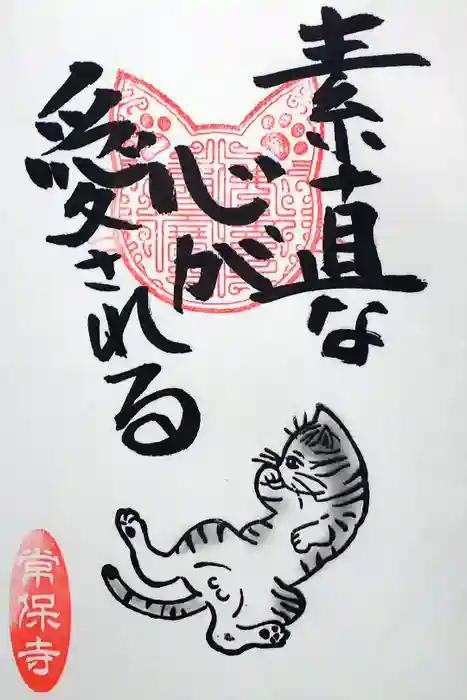 素直な
心が
愛される
常保寺